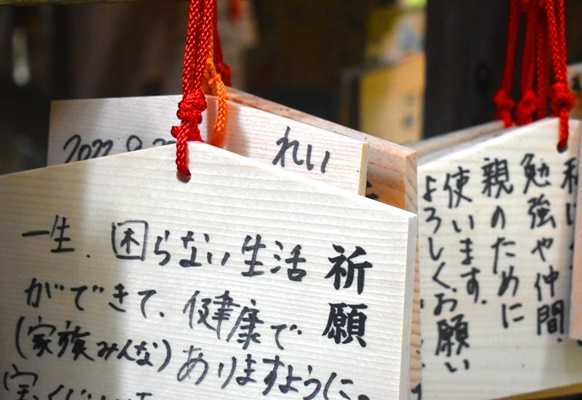 祈願
一生、困らない生活
ができて、健康で
(家族みんな)ありますように。
2022.9.2
れい
勉強や仲間、
親のために
使います。
よろしくお願い